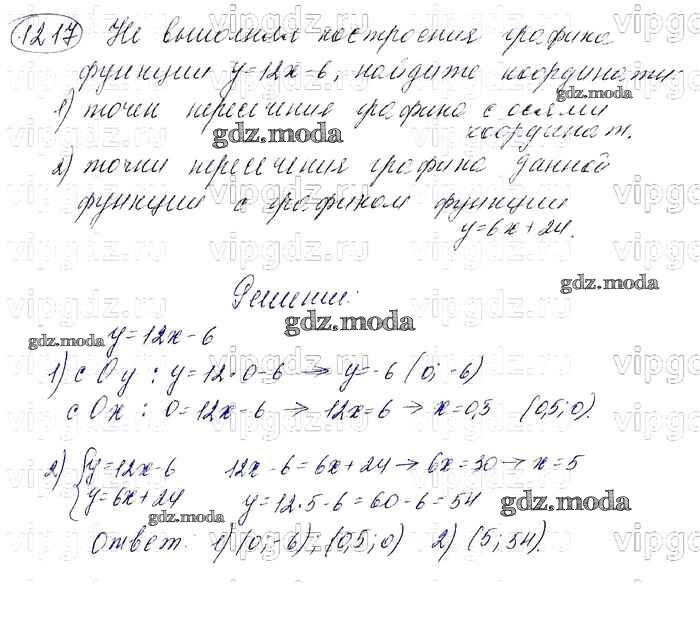 1217 Не выполняя построения графика
функции y=12x-6, найдите координаты:
1) точек пересечения графика с осями
координат.
2) точки пересечения графика данной
функции с графиком функции
y=6x+24.
Решение:
y=12x-6
1) с Оу : y=12·0-6 → y=-6 (0; -6)
с Ох : 0=12x-6 → 12x=6 → x=0,5 (0,5; 0).
2) { y=12x-6 12x-6=6x+24 → 6x=30 → x=5
y=6x+24 y=12·5-6=60-6=54
Ответ: 1) (0; -6), (0,5; 0) 2) (5; 54).
gdz.moda
gdz.moda
gdz.moda
gdz.moda
gdz.moda
gdz.moda
gdz.moda
vipgdz.ru